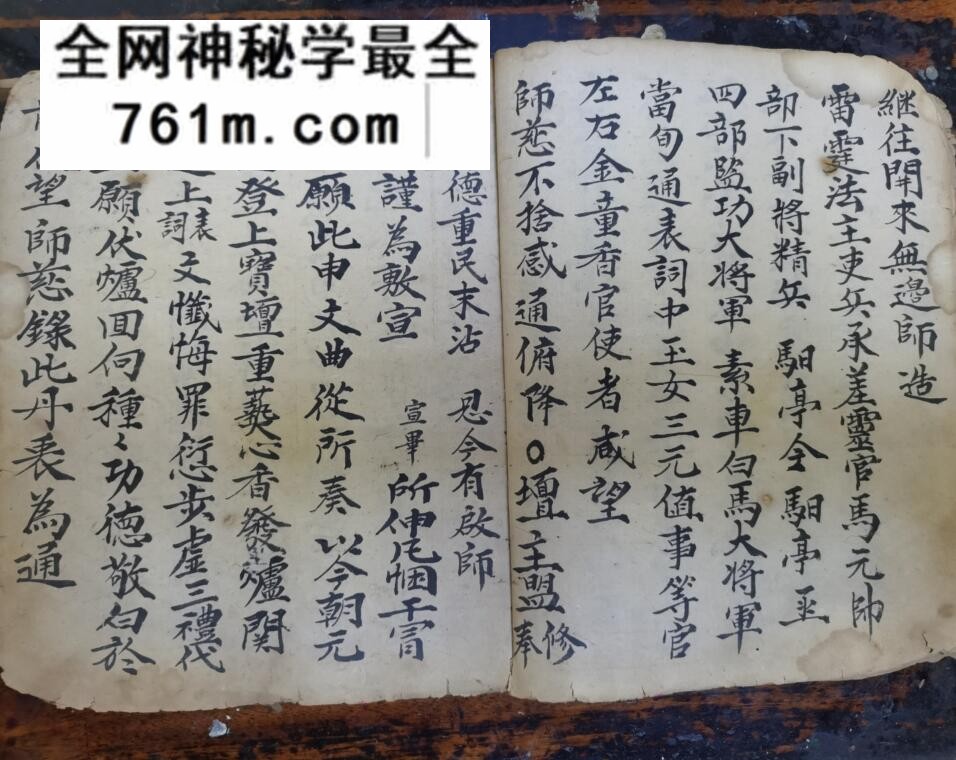 全网神秘学最全
761m.com
継往開來無邊師造
雷霆法主吏兵承差靈官馬元帥
部下副將精兵 馹亭令 馹亭丞
四部監功大将軍 素車白馬大将軍
當旬通表詞中玉女三元值事等官
左右金童香官使者咸望
師慈不捨感通俯降〇壇主盟修奉
德重民末沾 恩今有啟師
謹為敷宣 宣畢 所伸悃干冒
願此申文曲從所奏 以今朝元
登上寶壇重爇心香發爐関
上表詞又懺悔罪愆步虛三禮代
願伏爐回向種〻功德敬白於
望師慈錄此丹表為通